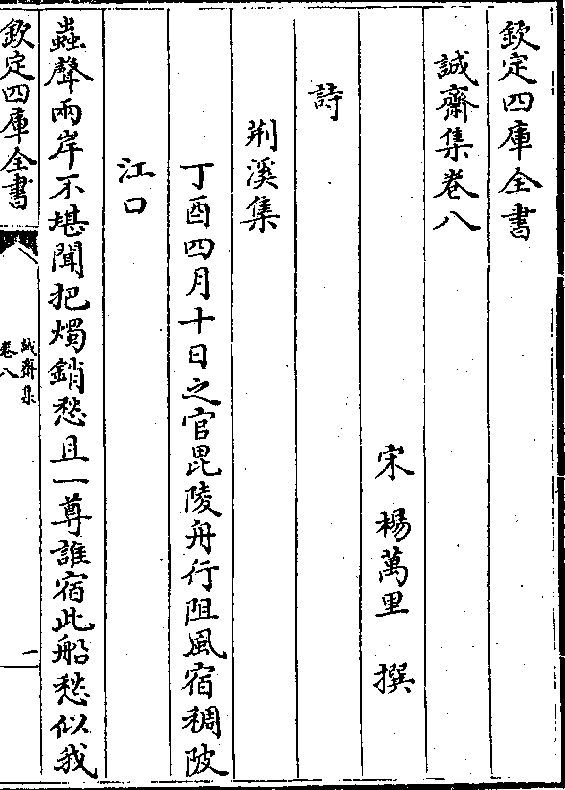 欽定四庫全書
誠齋集卷八
宋 楊萬里 撰
詩
荆溪集
丁酉四月十日之官毘陵舟行阻風宿稠陂
江口
蟲聲兩岸不堪聞把燭銷愁且一尊誰宿此船愁似我
欽定四庫全書
誠齋集
卷八
一